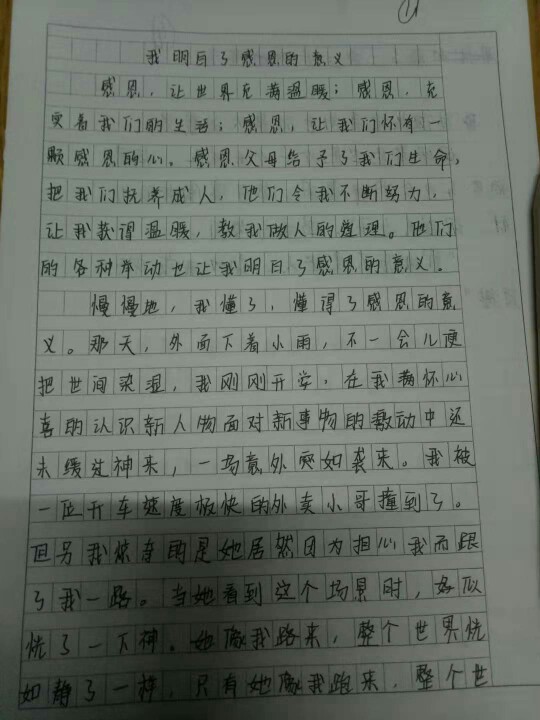 我明白了感恩的意义
感恩，让世界充满温暖；感恩，充
实着我们的生活；感恩，让我们怀有一
颗感恩的心。感恩父母给予了我们生命，
把我们抚养成人，他们令我不断努力，
让我获得温暖，教我做人的道理。他们
的各种举动也让我明白了感恩的意义。
慢慢地，我懂了，懂得了感恩的意
义。那天，外面下着小雨，不一会儿便
把世间染湿，我刚刚开学，在我满怀心
喜的认识新人物面对新事物的激动中还
未缓过神来，一场意外突如袭来。我被
一位开车速度极快的外卖小哥撞到了。
但另我惊奇的是她居然因为担心我而跟
了我一路。当她看到这个场景时，好似
恍了一下神。她向我跑来，整个世界恍
如静了一样，只有她向我跑来，整个世